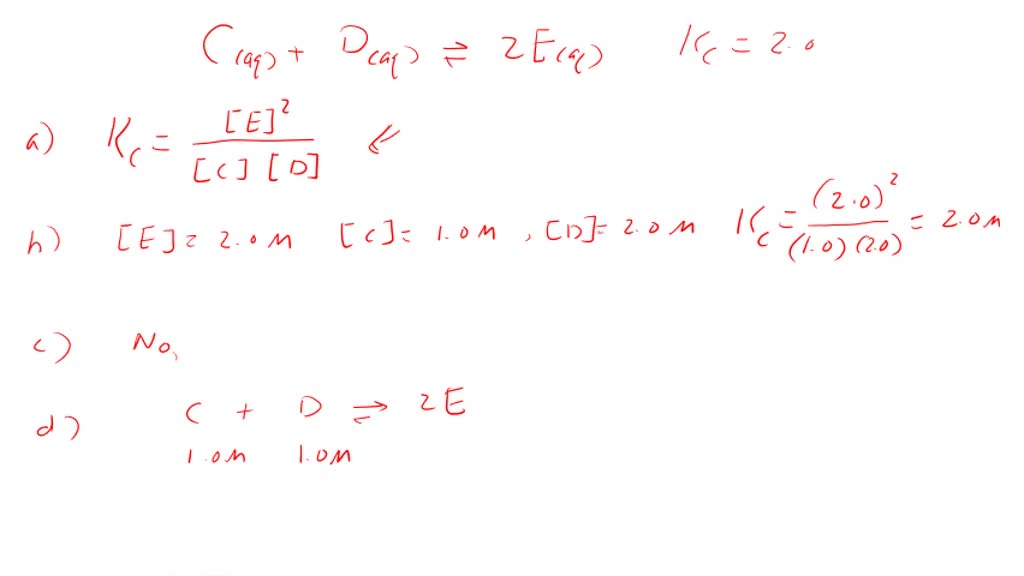 C(aq) + D(aq) ⇌ 2E(aq) Kc = 2.0
a) Kc = [E]² / [C] [D] ←
b) [E] = 2.0 M [C] = 1.0 M , [D] = 2.0 M Kc = (2.0)² / (1.0) (2.0) = 2.0 M
c) No,
d) C + D ⇌ 2E
1.0 M 1.0 M